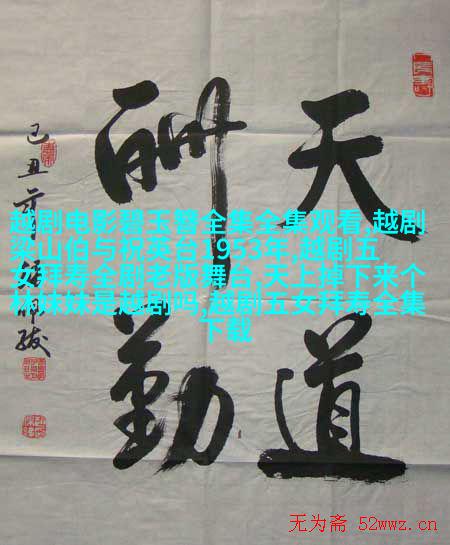 天道
酬勤
己丑
越剧电影碧玉簪全集全集观看,越剧
梁山伯与祝英台1953年,越剧五
女拜寿全剧老版舞台,天上掉下来个
林妹妹是越剧吗,越剧五女拜寿全集
下载
无为斋 52wwz.cn